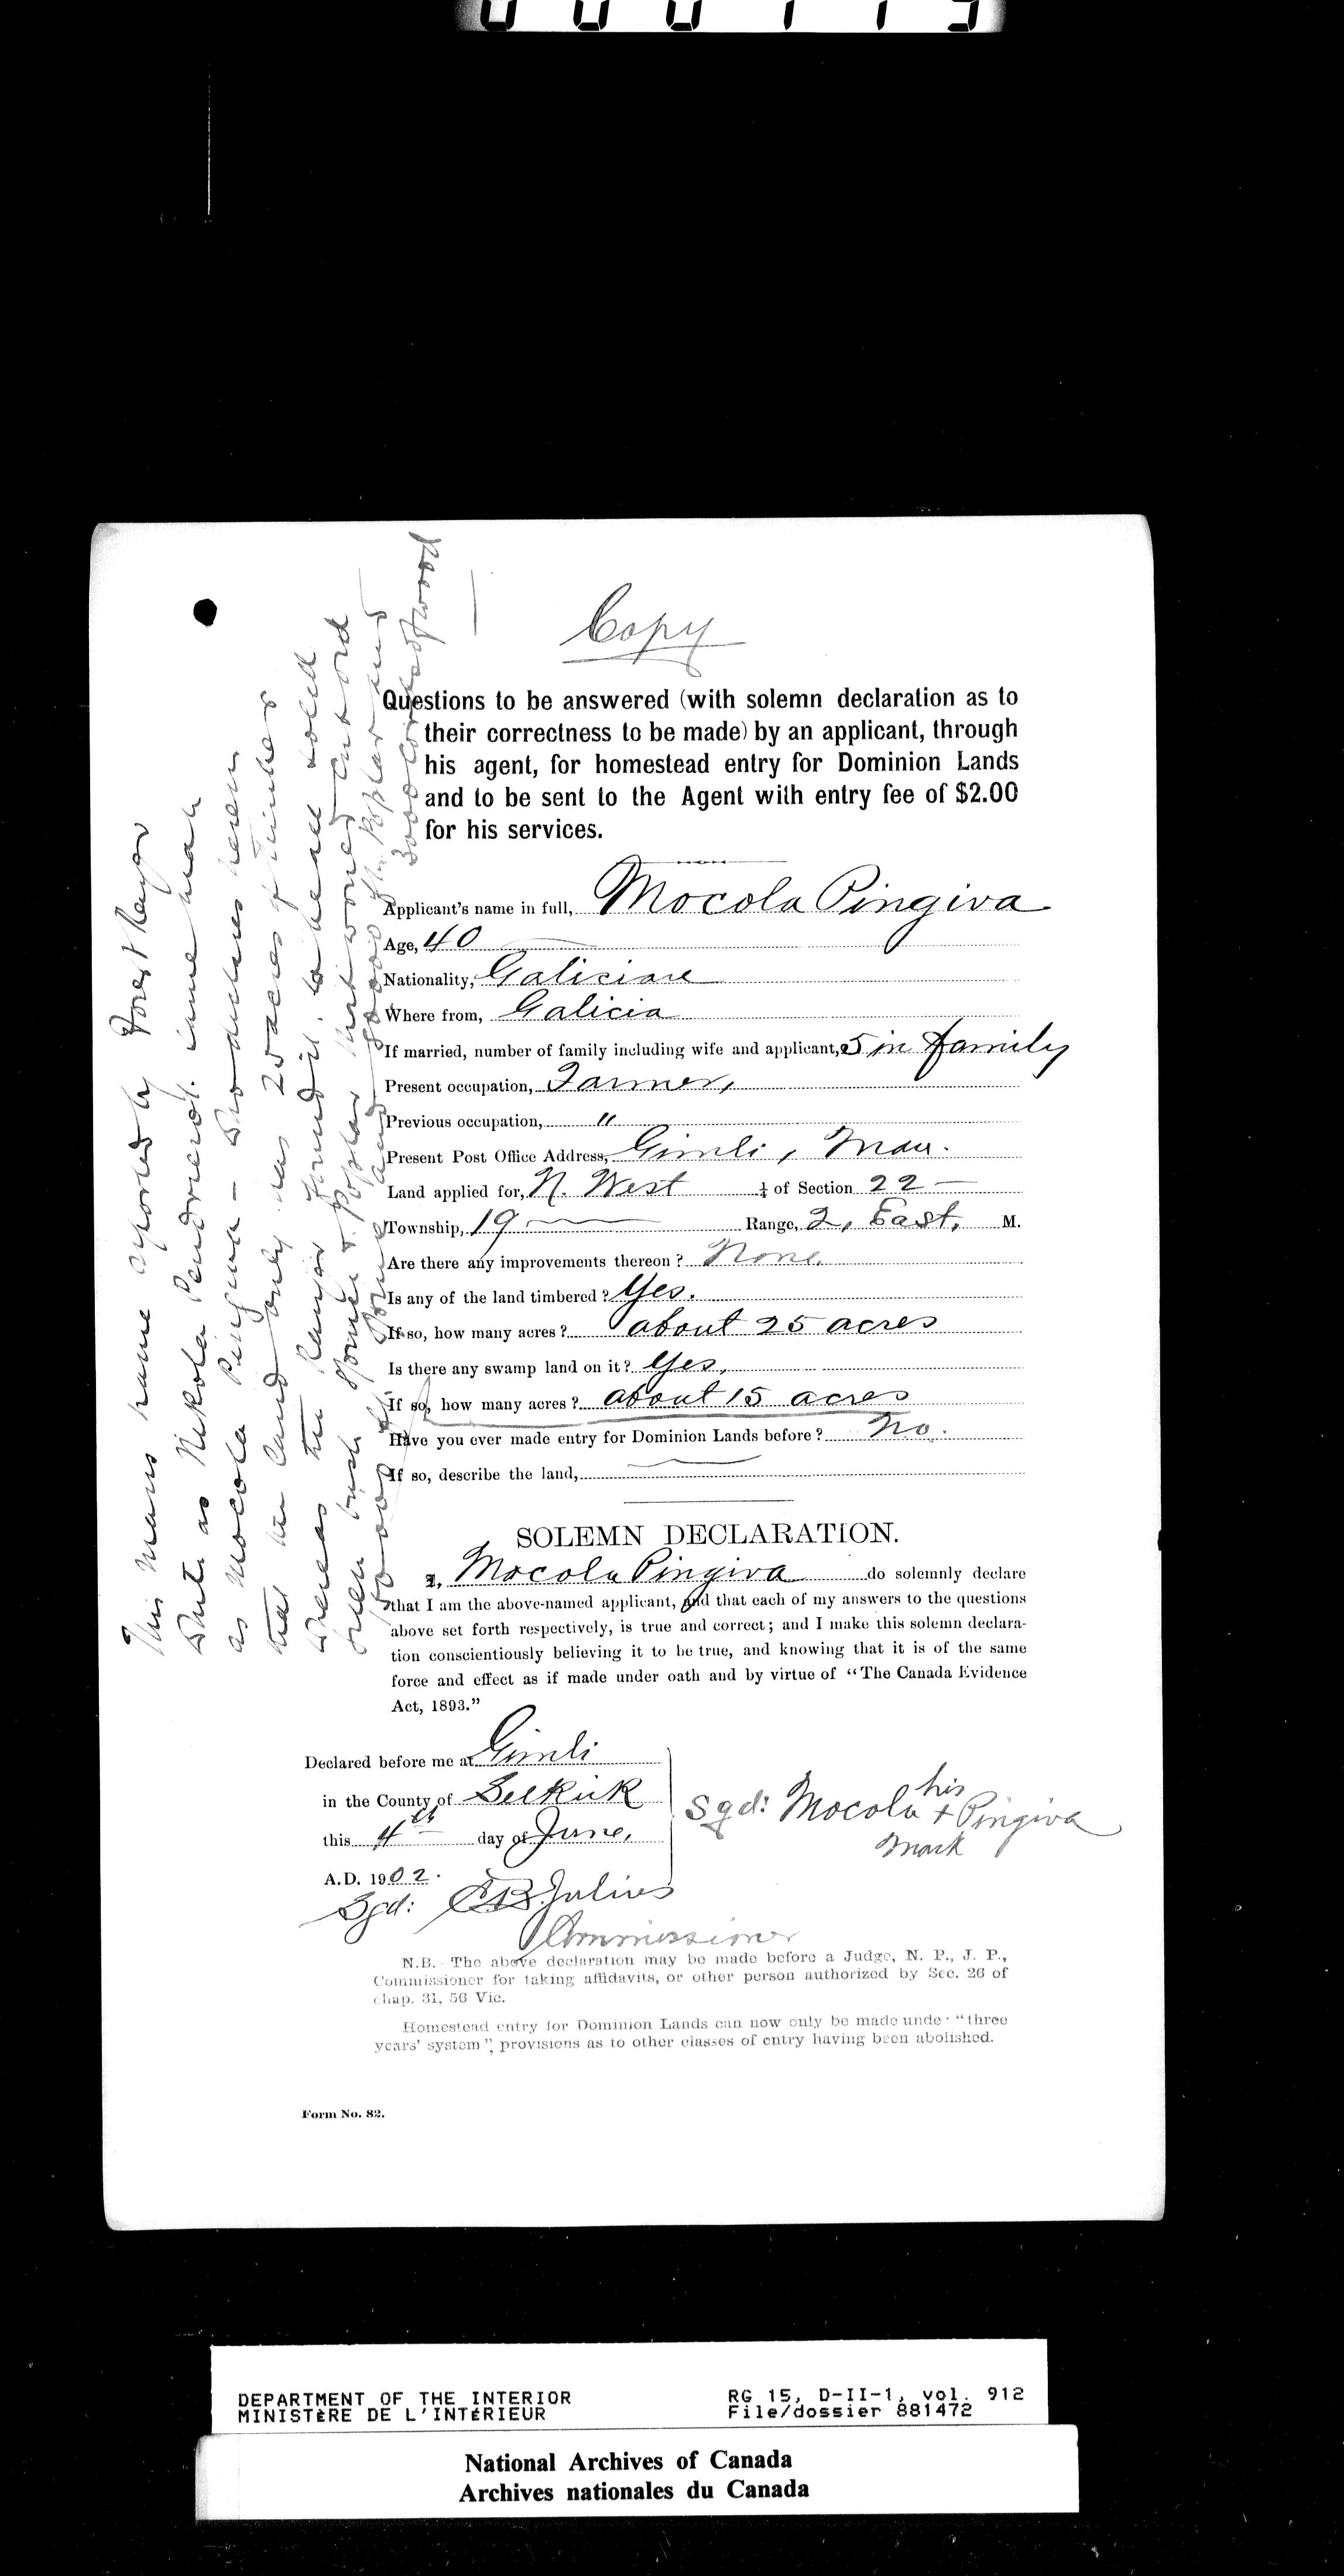 Copy
Questions to be answered (with solemn declaration as to
their correctness to be made) by an applicant, through
his agent, for homestead entry for Dominion Lands
and to be sent to the Agent with entry fee of $2.00
for his services.
Applicant's name in full, Mocola Pingiva
Age, 40
Nationality, Galician
Where from, Galicia
If married, number of family including wife and applicant, 5 in family
Present occupation, Farmer,
Previous occupation, "
Present Post Office Address, Gimli, Man.
Land applied for, N. West ¼ of Section 22
Township, 19 Range, 2, East, M.
Are there any improvements thereon? None.
Is any of the land timbered? Yes.
If so, how many acres? about 25 acres
Is there any swamp land on it? Yes,
If so, how many acres? about 15 acres
Have you ever made entry for Dominion Lands before? No.
If so, describe the land,
SOLEMN DECLARATION.
I, Mocola Pingiva do solemnly declare
that I am the above-named applicant, and that each of my answers to the questions
above set forth respectively, is true and correct; and I make this solemn declara-
tion conscientiously believing it to be true, and knowing that it is of the same
force and effect as if made under oath and by virtue of "The Canada Evidence
Act, 1893."
Declared before me at Gimli
in the County of Selkirk
this 4th day of June,
A.D. 1902.
Sgd: Julius
Commissioner
Sgd: Mocola his + Pingiva
mark
N.B. The above declaration may be made before a Judge, N. P., J. P.,
Commissioner for taking affidavits, or other person authorized by Sec. 26 of
chap. 31, 56 Vic.
Homestead entry for Dominion Lands can now only be made unde "three
years' system", provisions as to other classes of entry having been abolished.
Form No. 82.
This mans name reported by Forest Ranger
as Nikola
as Mocola Pingiva -
that the land only has 25 acres of timber
whereas the Ranger found it to be all solid
green bush Spruce & Poplar that would cut
Poplar and
3000 Cords of wood
DEPARTMENT OF THE INTERIOR
MINISTÈRE DE L'INTÉRIEUR
RG 15, D-II-1, vol. 912
File/dossier 881472
National Archives of Canada
Archives nationales du Canada